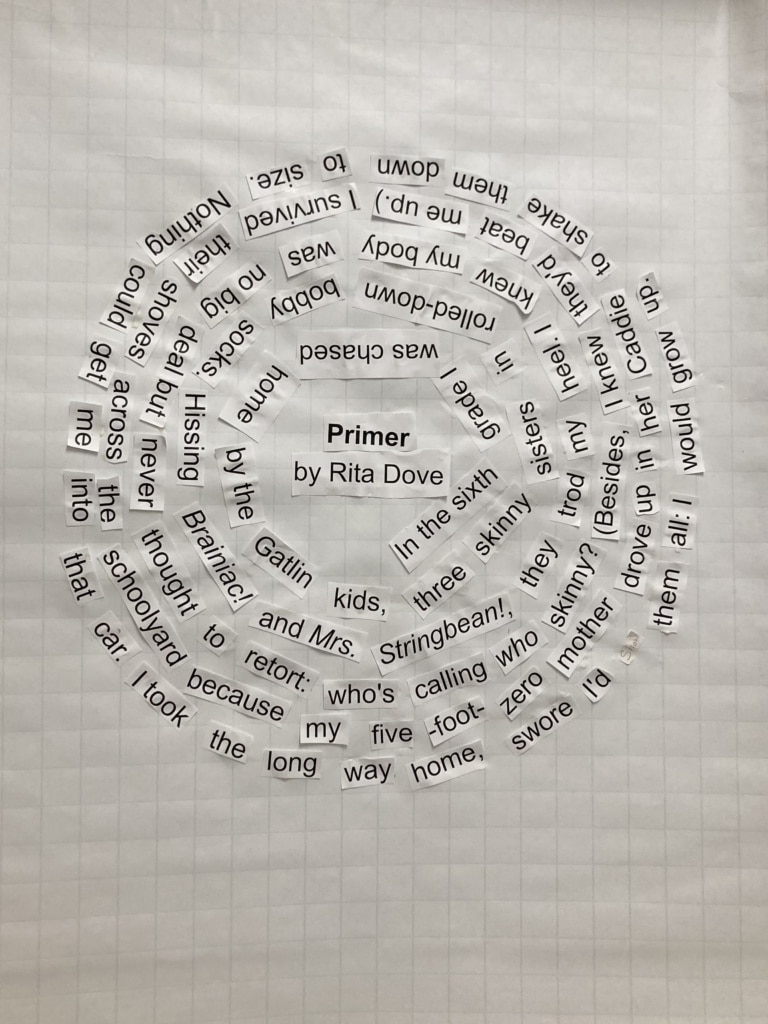 Primer
by Rita Dove
In the sixth grade I was chased home by the Gatlin kids,
three skinny sisters in rolled-down bobby socks. Hissing Brainiac! and Mrs. Stringbean!,
they trod my heel. I knew my body was no big deal but never thought to retort: who's calling who
skinny? (Besides, I knew they'd beat me up.) I survived their shoves across the schoolyard because my five -foot- zero
mother drove up in her Caddie to shake them down to size. Nothing could get me into that car. I took the long way home,
swore I'd them all: I would grow up.